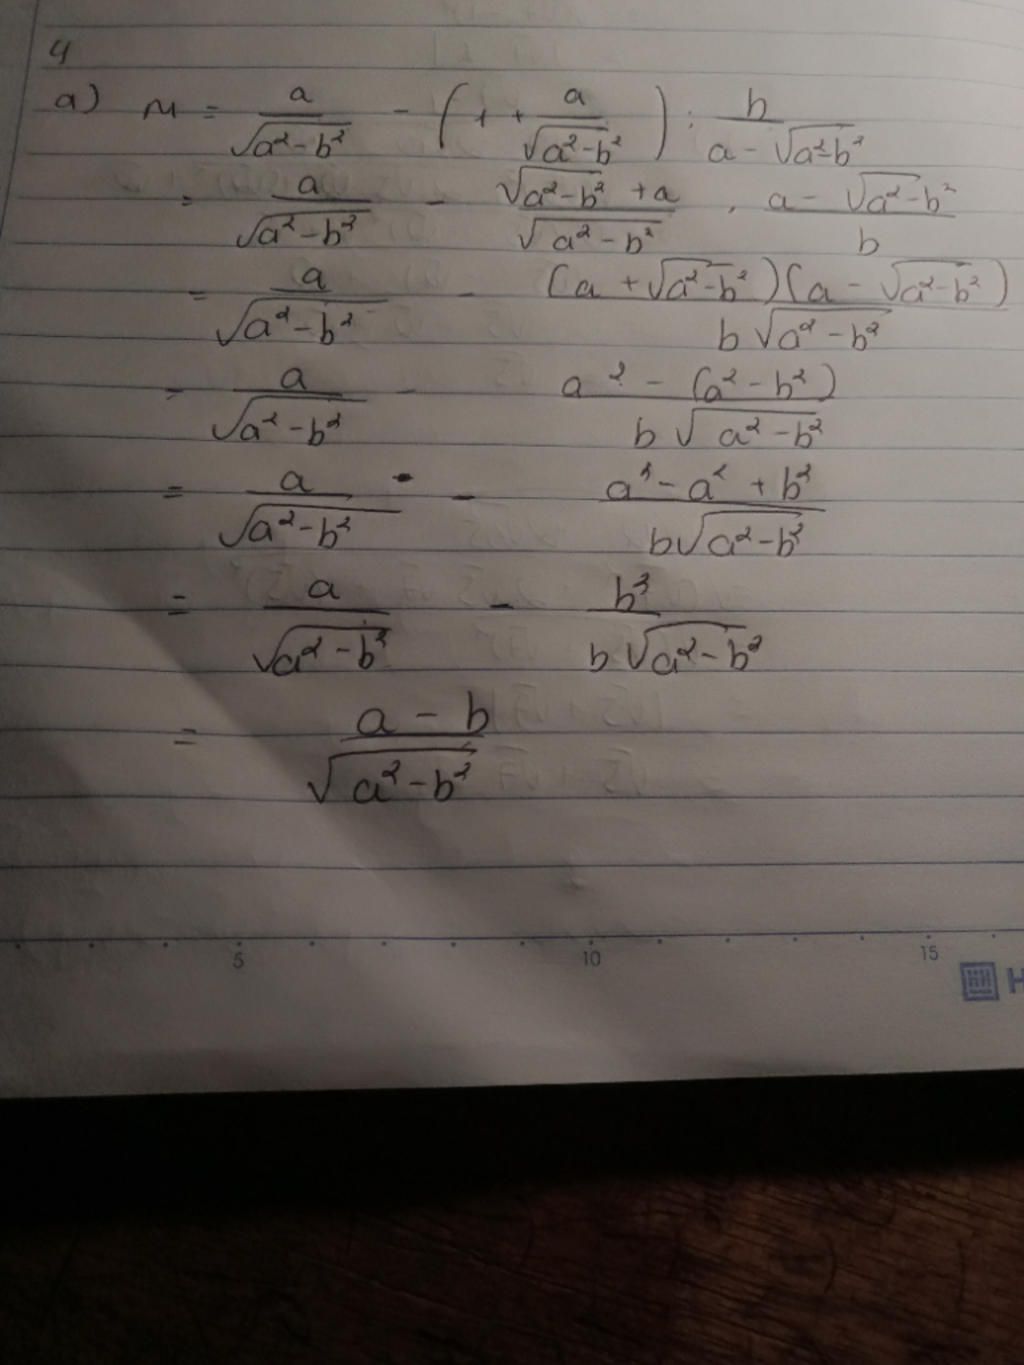 4
a) M = a/√(a²-b²) - (1 + a/√(a²-b²)) : b/(a-√(a²-b²))
= a/√(a²-b²) - (√(a²-b²) + a)/√(a²-b²) . (a - √(a²-b²))/b
= a/√(a²-b²) - (a + √(a²-b²))(a - √(a²-b²))/(b√(a²-b²))
= a/√(a²-b²) - (a² - (a²-b²))/(b√(a²-b²))
= a/√(a²-b²) - (a² - a² + b²)/(b√(a²-b²))
= a/√(a²-b²) - b²/(b√(a²-b²))
= (a - b)/√(a²-b²)
5 10 15
H